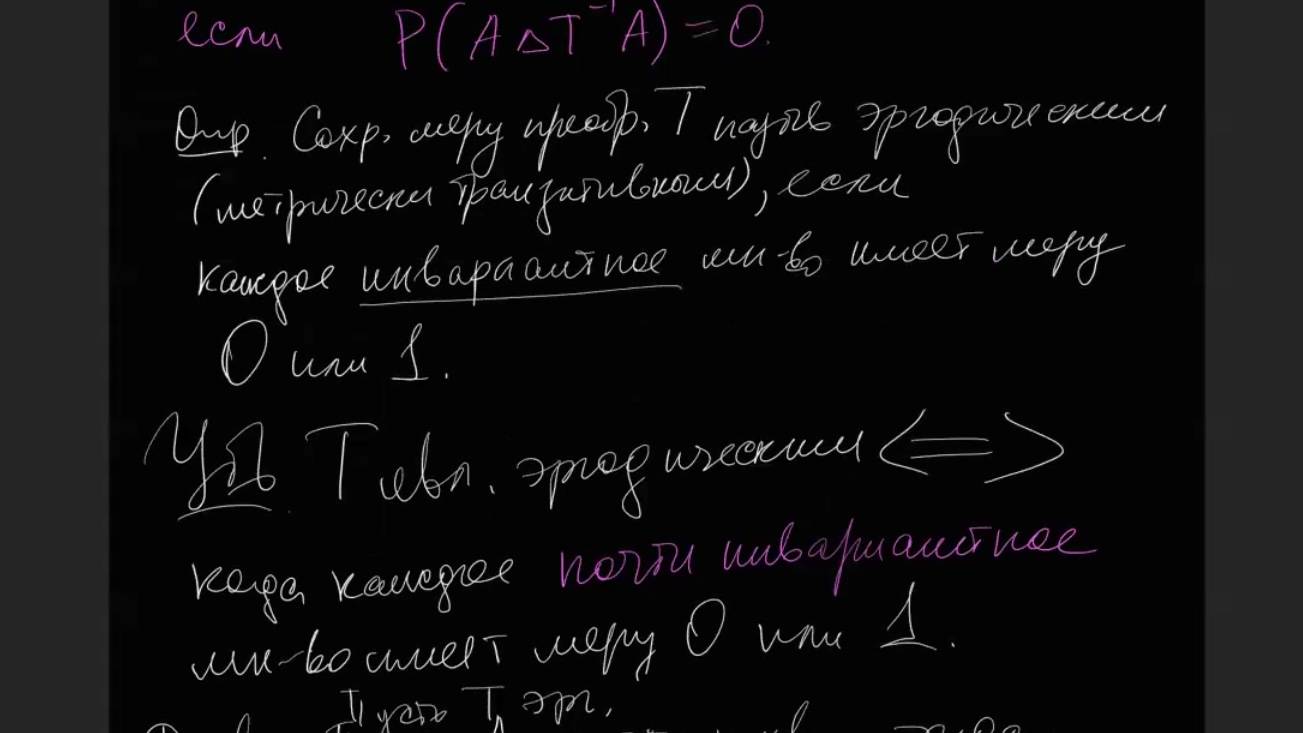 если P(A △ T⁻¹A) = 0.
Опр. Сохр. меру преобр. T назыв эргодическим
(метрически транзитивным), если
каждое инвариантное мн-во имеет меру
0 или 1.
Утв. T явл. эргодическим <=>
когда каждое почти инвариантное
мн-во имеет меру 0 или 1.
Пусть T эрг.